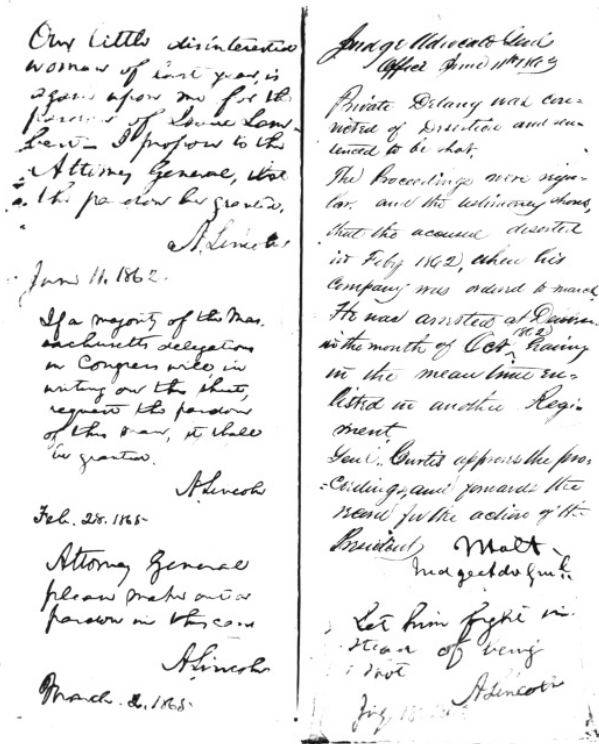 Our little disinterested
woman of last year, is
again upon me for the
pardon of Louie Lam-
bert. I propose to the
Attorney General, that
the pardon be granted.
A. Lincoln
June 11. 1862.
If a majority of the Mas-
sachusetts delegation
in Congress will, in
writing on this sheet,
request the pardon
of this man, it shall
be granted.
A. Lincoln
Feb. 28. 1865
Attorney General
please make out a
pardon in this case
A. Lincoln
March 2. 1865.
Judge Advocate Genl
Office June 11th 1863
Private Delany was con-
victed of Desertion and sen-
tenced to be shot.
The Proceedings were regu-
lar, and the testimony shows,
that the accused deserted
in Feby 1862, when his
Company was ordered to march
He was arrested at Denver
in the month of Oct. 1862 having
in the mean time en-
listed in another Regi-
ment,
Genl. Curtis approves the pro-
ceedings, and forwards the
record for the action of the
President,
Holt
Judge Adv Genl.
Let him fight in-
stead of being
shot
A. Lincoln